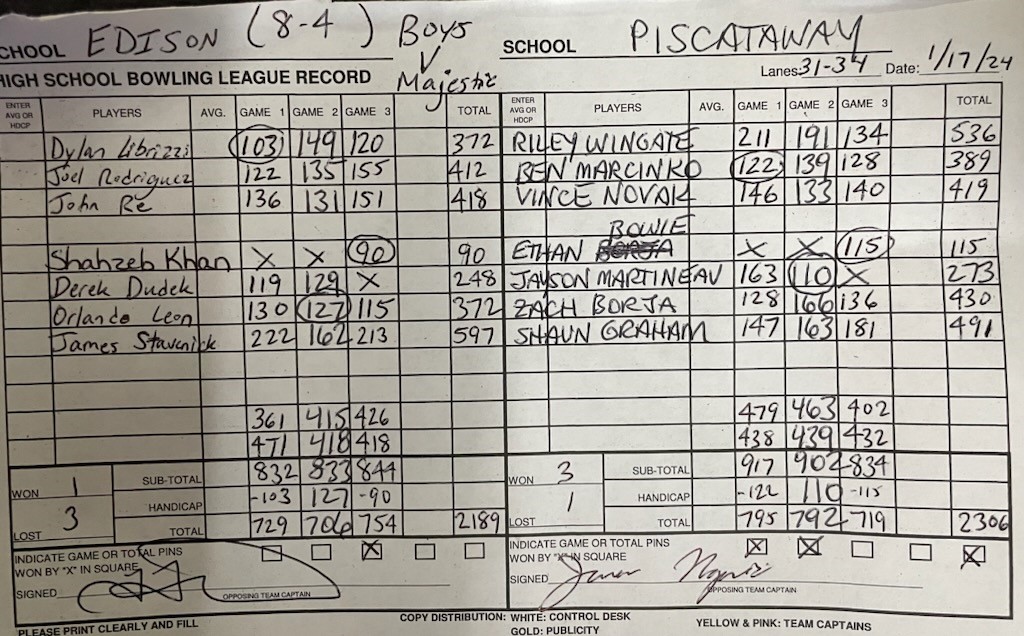 SCHOOL EDISON (8-4) Boys SCHOOL PISCATAWAY
HIGH SCHOOL BOWLING LEAGUE RECORD Majestic Lanes: 31-34 Date: 1/17/24
ENTER AVG OR HDCP PLAYERS AVG. GAME 1 GAME 2 GAME 3 TOTAL ENTER AVG OR HDCP PLAYERS AVG. GAME 1 GAME 2 GAME 3 TOTAL
Dylan Librizzi 103 149 120 372 RILEY WINGATE 211 191 134 536
Joel Rodriguez 122 135 155 412 BEN MARCINKO 122 139 128 389
John Re 136 131 151 418 VINCE NOVAK 146 133 140 419
BOWIE
Shahzeb Khan X X 90 90 ETHAN X X 115 115
Derek Dudek 119 129 X 248 JAYSON MARTINEAU 163 110 X 273
Orlando Leon 130 127 115 372 ZACH BORJA 128 166 136 430
James Stavenick 222 162 213 597 SHAUN GRAHAM 147 163 181 491
361 415 426 479 463 402
471 418 418 438 439 432
WON 1 SUB-TOTAL 832 833 844 WON 3 SUB-TOTAL 917 902 834
HANDICAP -103 127 -90 HANDICAP -122 110 -115
LOST 3 TOTAL 729 706 754 2189 LOST 1 TOTAL 795 792 719 2306
INDICATE GAME OR TOTAL PINS WON BY "X" IN SQUARE X INDICATE GAME OR TOTAL PINS WON BY "X" IN SQUARE X X X
SIGNED OPPOSING TEAM CAPTAIN SIGNED OPPOSING TEAM CAPTAIN
PLEASE PRINT CLEARLY AND FILL COPY DISTRIBUTION: WHITE: CONTROL DESK YELLOW & PINK: TEAM CAPTAINS
GOLD: PUBLICITY